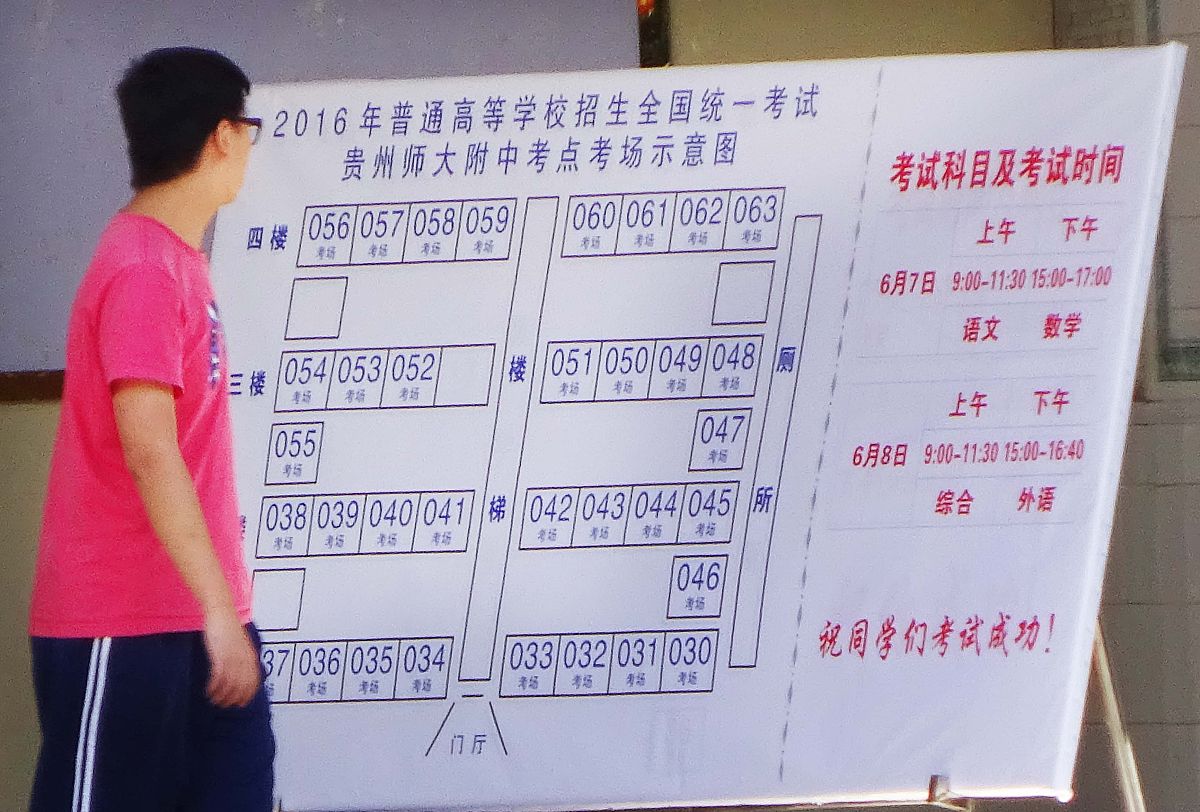 2016年普通高等学校招生全国统一考试
贵州师大附中考点考场示意图
四楼
056 057 058 059
考场 考场 考场 考场
060 061 062 063
考场 考场 考场 考场
三楼
054 053 052
考场 考场 考场
051 050 049 048
考场 考场 考场 考场
055
考场
047
考场
038 039 040 041
考场 考场 考场 考场
042 043 044 045
考场 考场 考场 考场
046
考场
37 036 035 034
考场 考场 考场
033 032 031 030
考场 考场 考场 考场
楼
梯
厕
所
门厅
考试科目及考试时间
上午 下午
6月7日 9:00-11:30 15:00-17:00
语文 数学
上午 下午
6月8日 9:00-11:30 15:00-16:40
综合 外语
祝同学们考试成功!